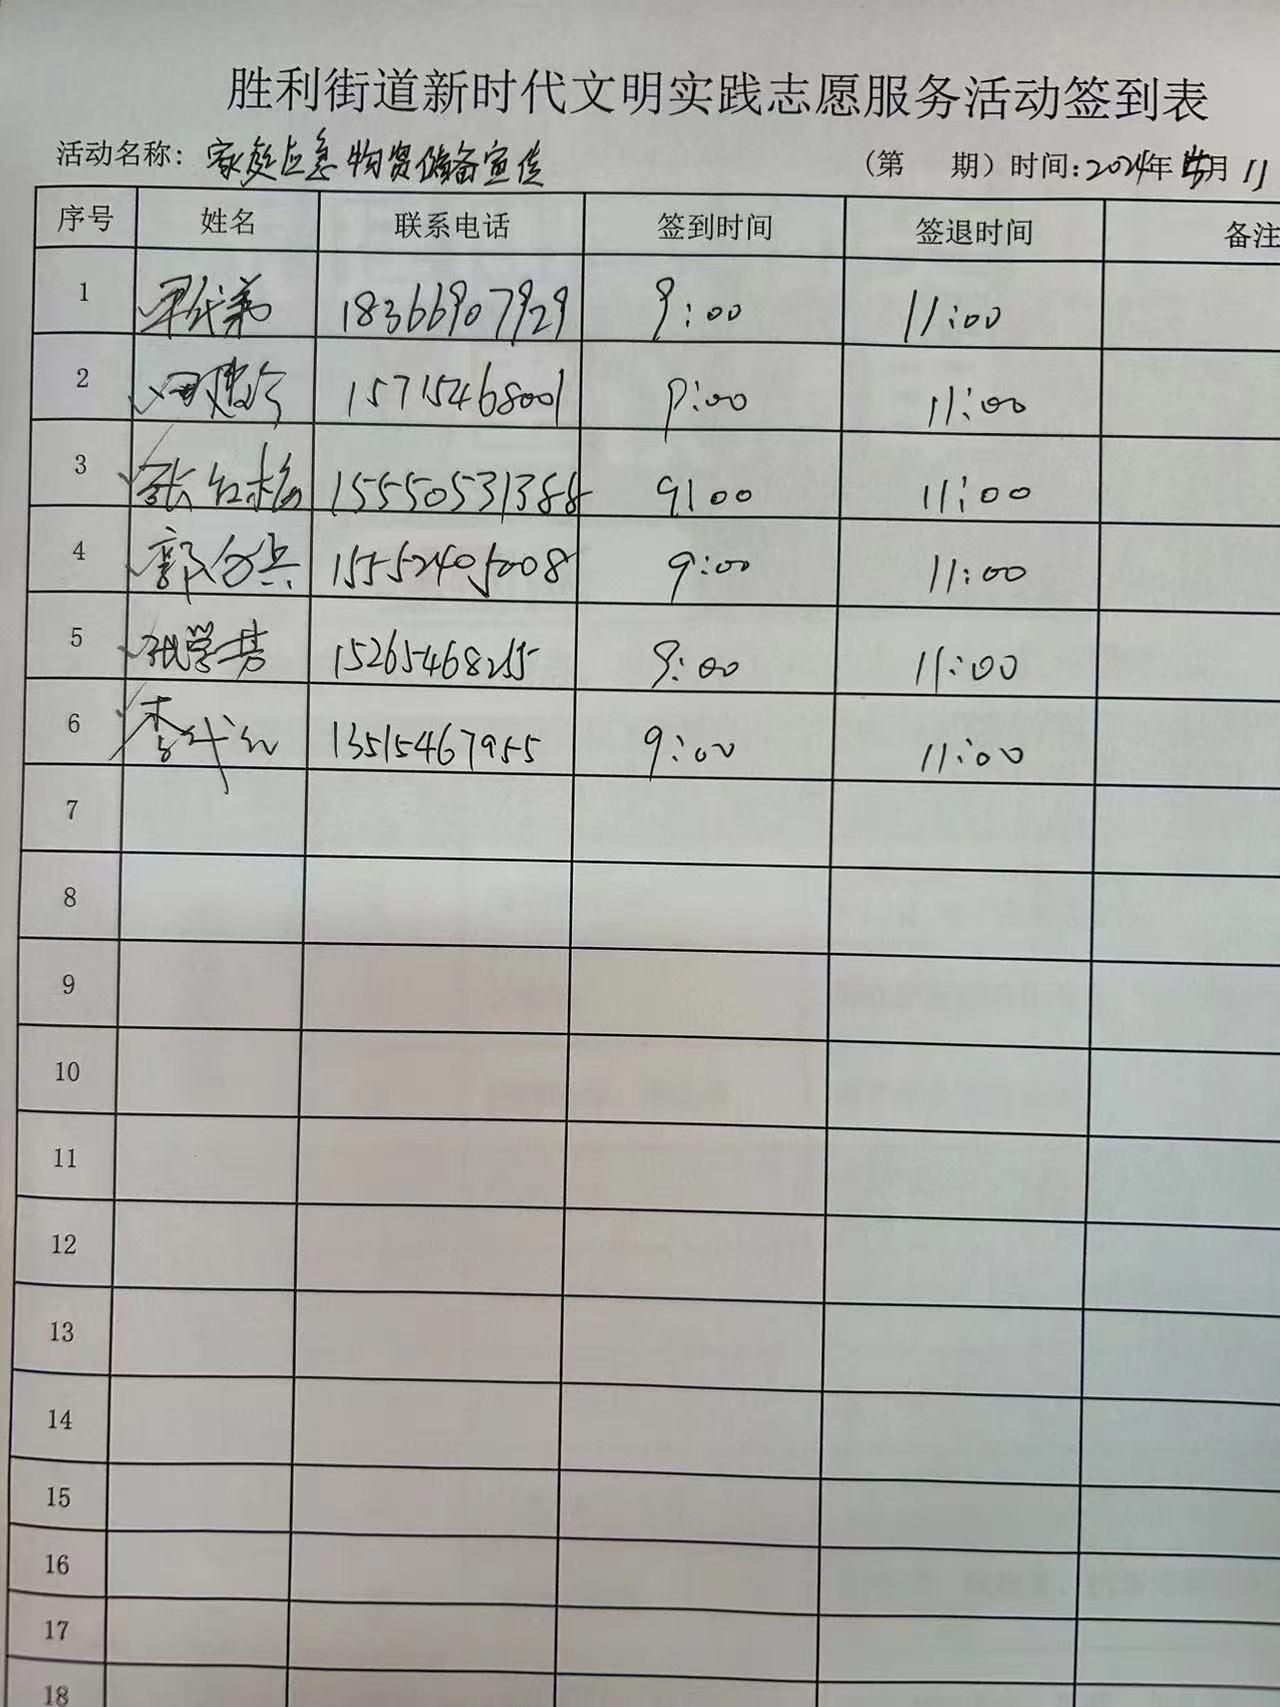 胜利街道新时代文明实践志愿服务活动签到表
活动名称：家庭应急物资储备宣传 （第 期）时间：2024年 月 11
序号 姓名 联系电话 签到时间 签退时间 备注
1 18366907929 9:00 11:00
2 15715468001 9:00 11:00
3 张红梅 15550531388 9:00 11:00
4 郭 兵 15552405008 9:00 11:00
5 张学芳 15265468255 9:00 11:00
6 李代红 13515467955 9:00 11:00
7
8
9
10
11
12
13
14
15
16
17
18